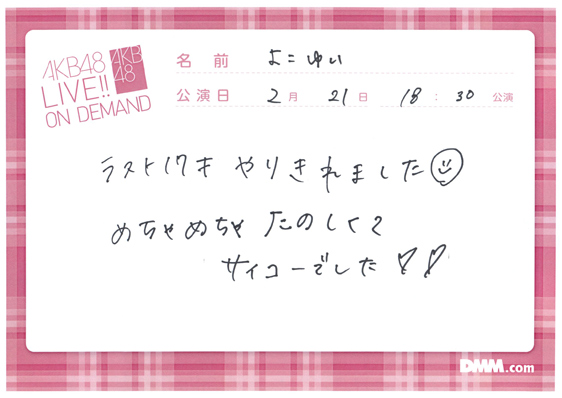 AKB48
LIVE!!
ON DEMAND
AKB
48
名前 よこゆい
公演日 2月 21日 18:30 公演
ラスト17才 やりきれました
めちゃめちゃ たのしくて
サイコーでした
DMM.com